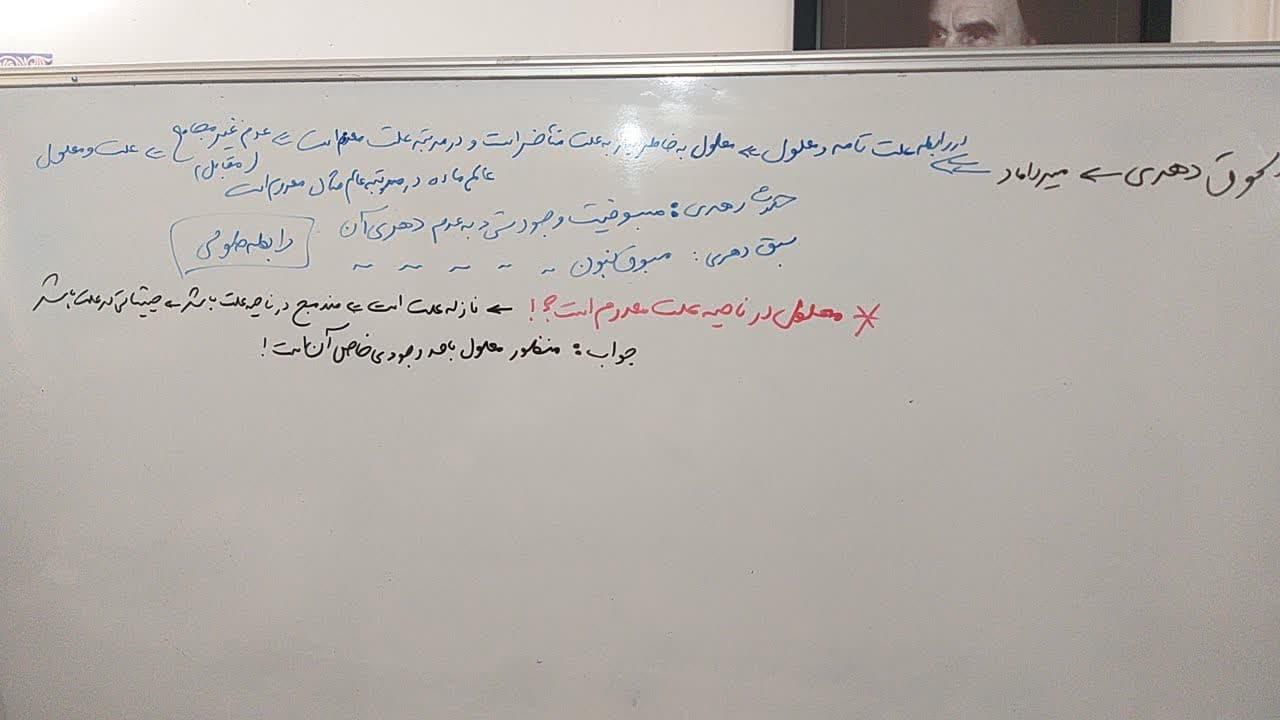 لحوق دهری ⇐ میرداماد ⇐
در رابطه علت تامه و معلول ⇐ معلول به خاطر نیاز به علت متأخر است و در مرتبه علت معدوم است ⇐ عدم غیر مجامع (مقابل) ⇐ علت و معلول
عالم ماده در مرتبه عالم مثال معدوم است
حدوث دهری: مسبوقیت وجود شیء به عدم دهری آن
سبق دهری: مسبوق نبودن ~ ~ ~ ~ ~
رابطه طولی
* معلول در ناحیه علت معدوم است؟! ← نازله علت است ⇐ مندمج در ناحیه علت باشد ⇐ علت باشد
جواب: منظور معلول با حد وجودی خاص آن است!